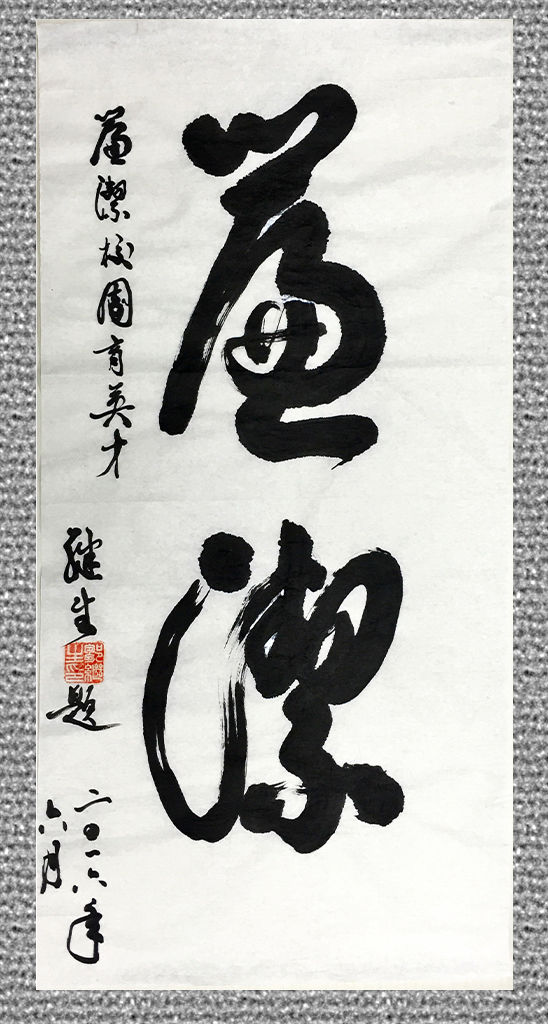 廉潔
廉潔校園育英才
继生
題
二〇一六年
六月